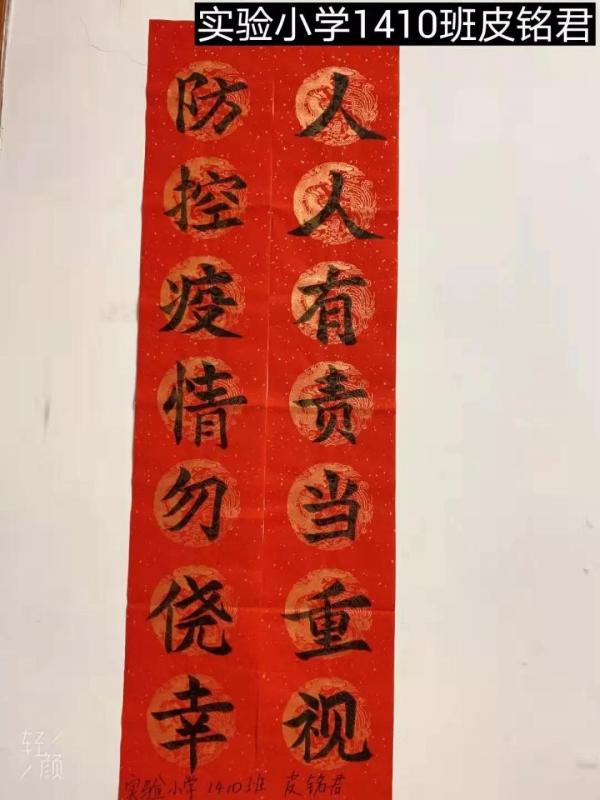 实验小学1410班皮铭君
人人有责当重视
防控疫情勿侥幸
实验小学 1410班 皮铭君
轻颜